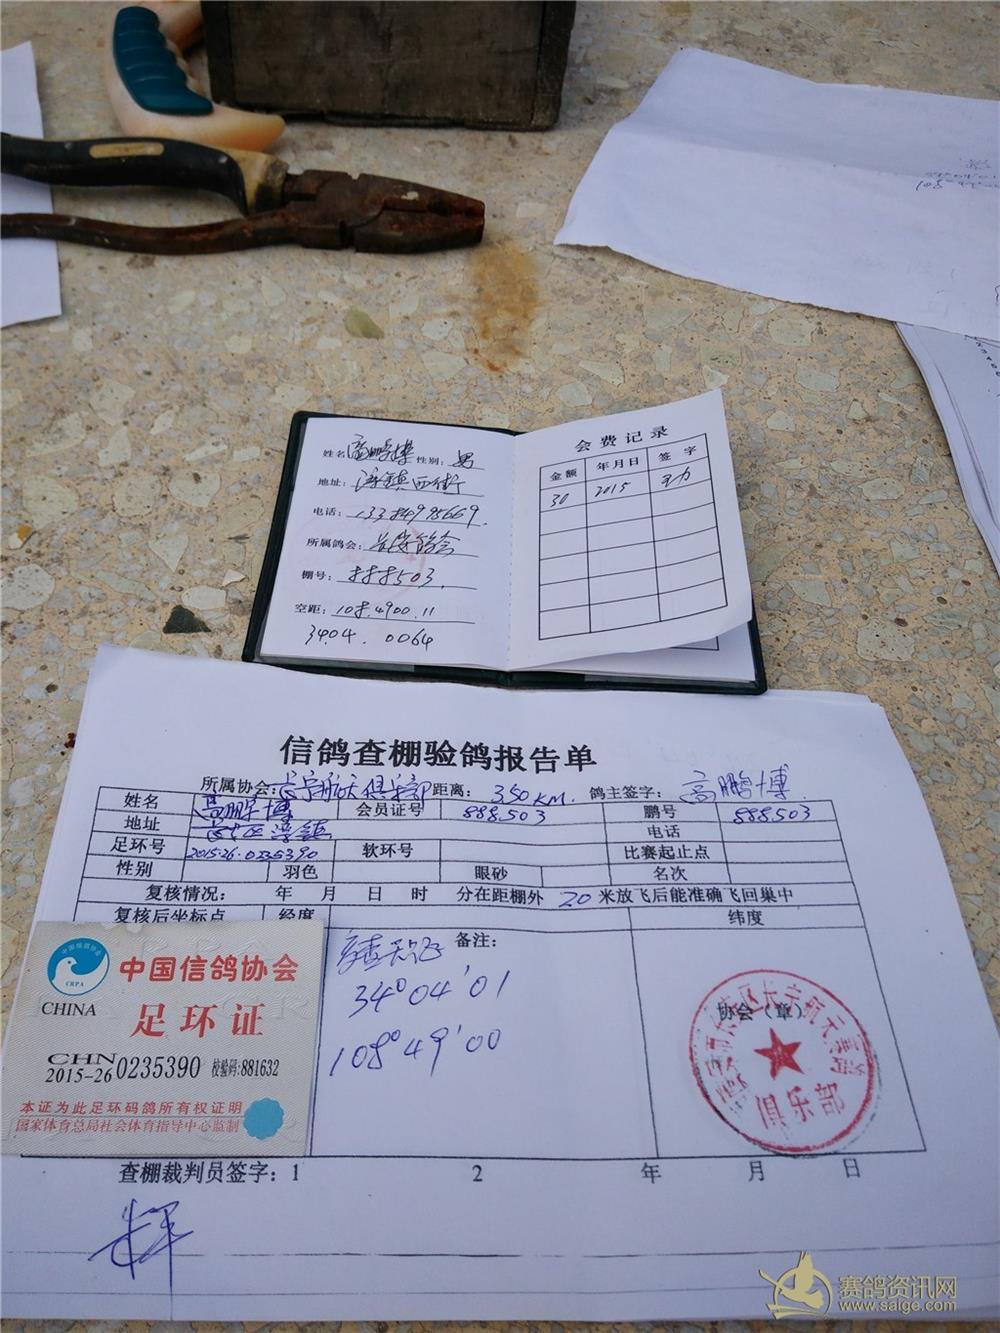 姓名 高鹏博 性别: 男
地址: 滦镇西街
电话:
所属鸽会: 长安鸽会
棚号: 503
空距: 108.4900.11
3404.0064
会费记录
金额 年月日 签字
30 2015 王力
信鸽查棚验鸽报告单
所属协会: 长宇航天俱乐部 距离: 350KM. 鸽主签字: 高鹏博
姓名 高鹏博 会员证号 888503 鹏号 888503
地址 长安区滦镇 电话
足环号 2015.26.0235390 软环号 比赛起止点
性别 羽色 眼砂 名次
复核情况: 年 月 日 时 分在距棚外 20 米放飞后能准确飞回巢中
复核后坐标点 经度 纬度
备注:
34°04'01
108°49'00
协会(章)
俱乐部
中国信鸽协会
CRPA
CHINA
中国信鸽协会
足环证
CHN
2015-26 0235390 校验码:881632
本证为此足环码鸽所有权证明
国家体育总局社会体育指导中心监制
查棚裁判员签字: 1 2 年 月 日
赛鸽资讯网
www.saige.com